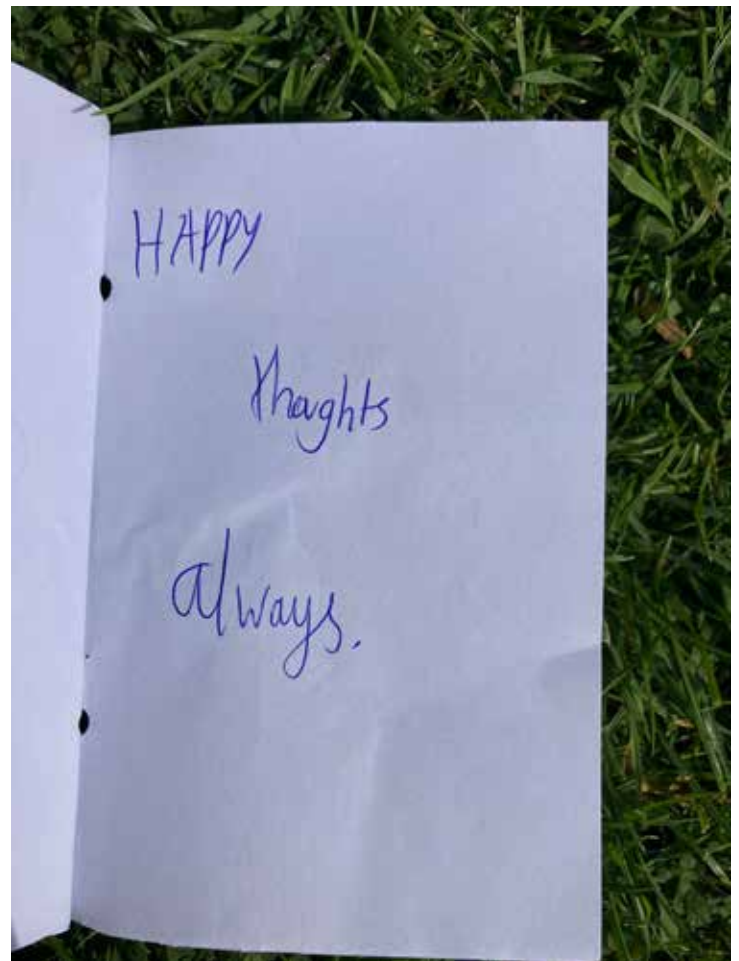 HAPPY
thoughts
always.